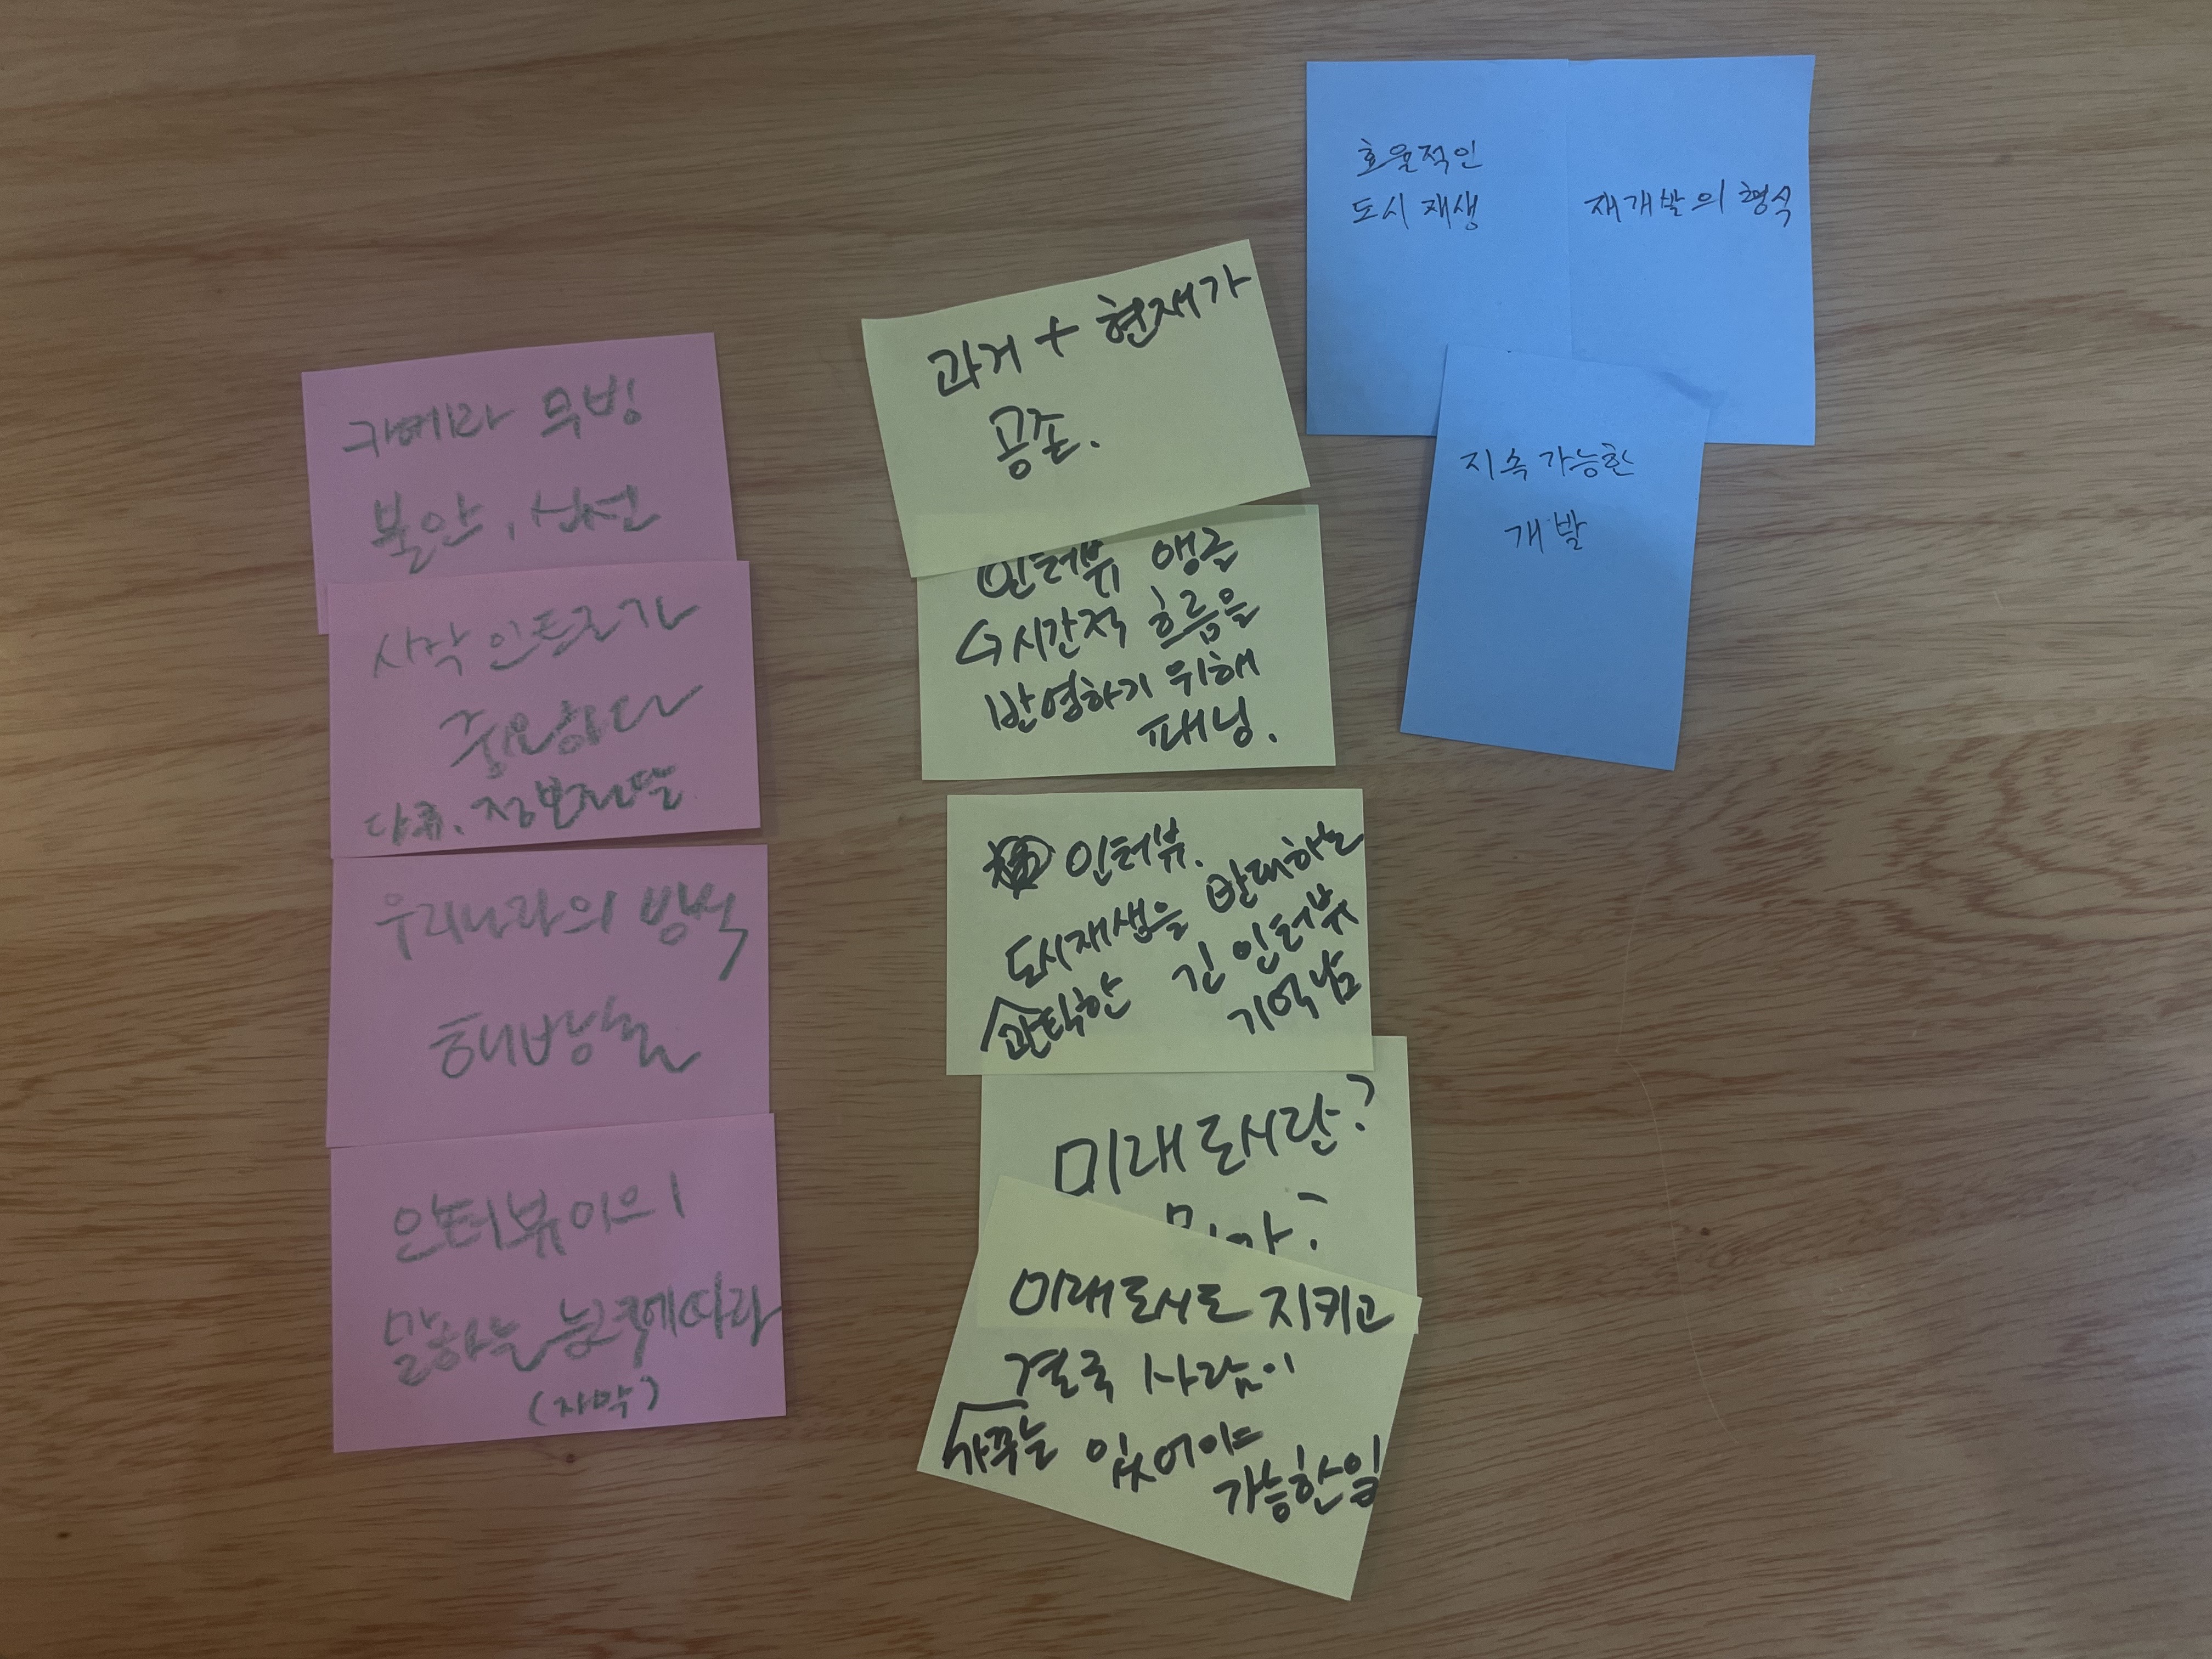 카메라 무빙
불안, 시선
시작 인트로가
중요하다
다큐. 정보전달
우리나라의 방식
해방촌
인터뷰이의
말하는 능력에따라
(자막)
과거 + 현재가
공존.
인터뷰 앵글
시간적 흐름을
반영하기 위해
패닝.
인터뷰.
도시재생을 반대하는
관탁한 긴 인터뷰
기억남
미래 도시란?
미래도시도 지키고
결국 사람이
가꾸는 있어야
가능한일
효율적인
도시 재생
재개발의 형식
지속 가능한
개발